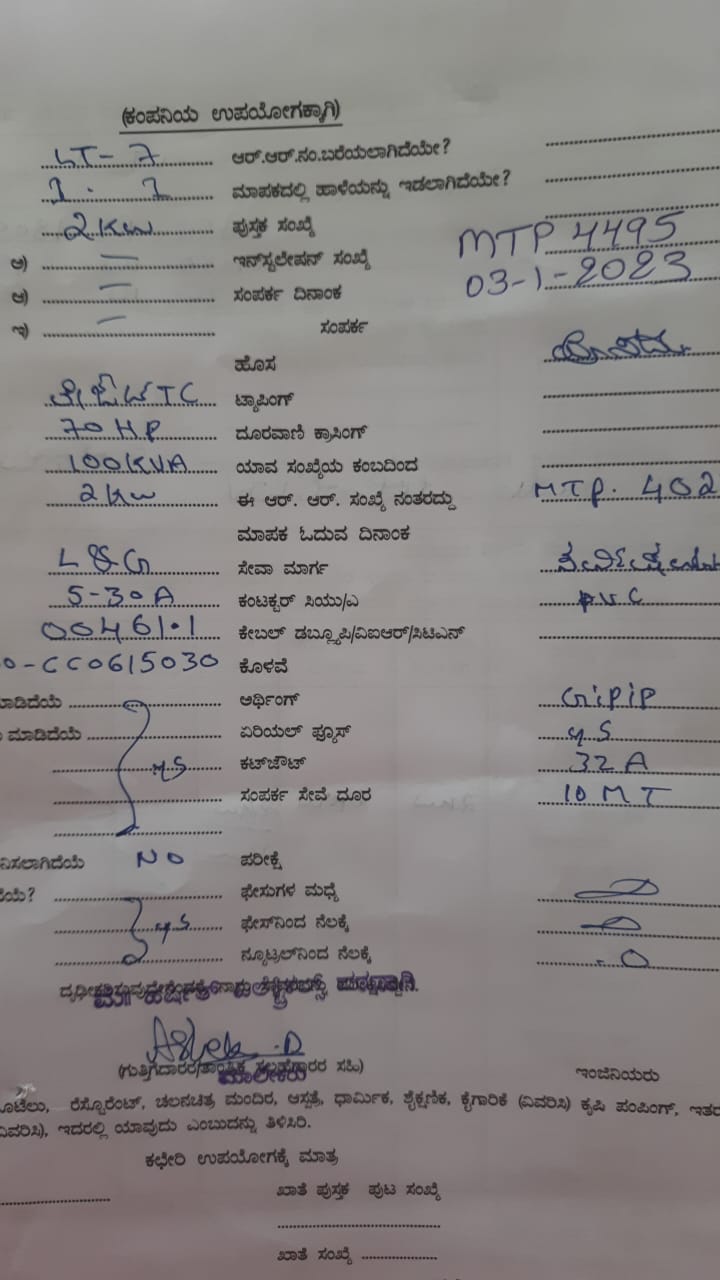 (ಕಂಪನಿಯ ಉಪಯೋಗಕ್ಕಾಗಿ)
LT-7 ಆರ್.ಆರ್.ನಂ.ಬರೆಯಲಾಗಿದೆಯೇ?
1. 1 ಮಾಪಕದಲ್ಲಿ ಹಾಳೆಯನ್ನು ಇಡಲಾಗಿದೆಯೇ?
2Kw ಪುಸ್ತಕ ಸಂಖ್ಯೆ
ಅ) — ಇನ್‌ಸ್ಟಲೇಷನ್ ಸಂಖ್ಯೆ MTP 4495
ಆ) — ಸಂಪರ್ಕ ದಿನಾಂಕ 03-1-2023
ಇ) — ಸಂಪರ್ಕ
ಹೊಸ
TC ಟ್ಯಾಪಿಂಗ್
70 HP ದೂರವಾಣಿ ಕ್ರಾಸಿಂಗ್
100KVA ಯಾವ ಸಂಖ್ಯೆಯ ಕಂಬದಿಂದ
2Kw ಈ ಆರ್. ಆರ್. ಸಂಖ್ಯೆ ನಂತರದ್ದು MTP. 402
ಮಾಪಕ ಓದುವ ದಿನಾಂಕ
L&G ಸೇವಾ ಮಾರ್ಗ
5-30A ಕಂಟಕ್ಟರ್ ಸಿಯು/ಎ PVC
00461.1 ಕೇಬಲ್ ಡಬ್ಲ್ಯೂಪಿ/ವಿಐಆರ್/ಸಿಟಿಎನ್
0-CC0615030 ಕೊಳವೆ
ಮಾಡಿದೆಯೆ ಅರ್ಥಿಂಗ್ GiPiP
ಮಾಡಿದೆಯೆ ಏರಿಯಲ್ ಫ್ಯೂಸ್ ys
ys ಕಟ್‌ಜೌಟ್ 32A
ಸಂಪರ್ಕ ಸೇವೆ ದೂರ 10 MT
ನಿಸಲಾಗಿದೆಯೆ NO ಪರೀಕ್ಷೆ
ಯೆ? ಫೇಸುಗಳ ಮಧ್ಯೆ
ys ಫೇಸ್‌ನಿಂದ ನೆಲಕ್ಕೆ
ನ್ಯೂಟ್ರಲ್‌ನಿಂದ ನೆಲಕ್ಕೆ
(ಗುತ್ತಿಗೆದಾರರ/ತಾಂತ್ರಿಕ ಸಲಹೆಗಾರರ ಸಹಿ) ಇಂಜಿನಿಯರು
ಮಾಲೀಕರು
ೂಟೆಲು, ರೆಸ್ಟೊರೆಂಟ್, ಚಲನಚಿತ್ರ ಮಂದಿರ, ಆಸ್ಪತ್ರೆ, ಧಾರ್ಮಿಕ, ಶೈಕ್ಷಣಿಕ, ಕೈಗಾರಿಕೆ (ವಿವರಿಸಿ) ಕೃಷಿ ಪಂಪಿಂಗ್, ಇತರ
ವಿವರಿಸಿ), ಇದರಲ್ಲಿ ಯಾವುದು ಎಂಬುದನ್ನು ತಿಳಿಸಿರಿ.
ಕಛೇರಿ ಉಪಯೋಗಕ್ಕೆ ಮಾತ್ರ
ಖಾತೆ ಪುಸ್ತಕ ಪುಟ ಸಂಖ್ಯೆ
ಖಾತೆ ಸಂಖ್ಯೆ